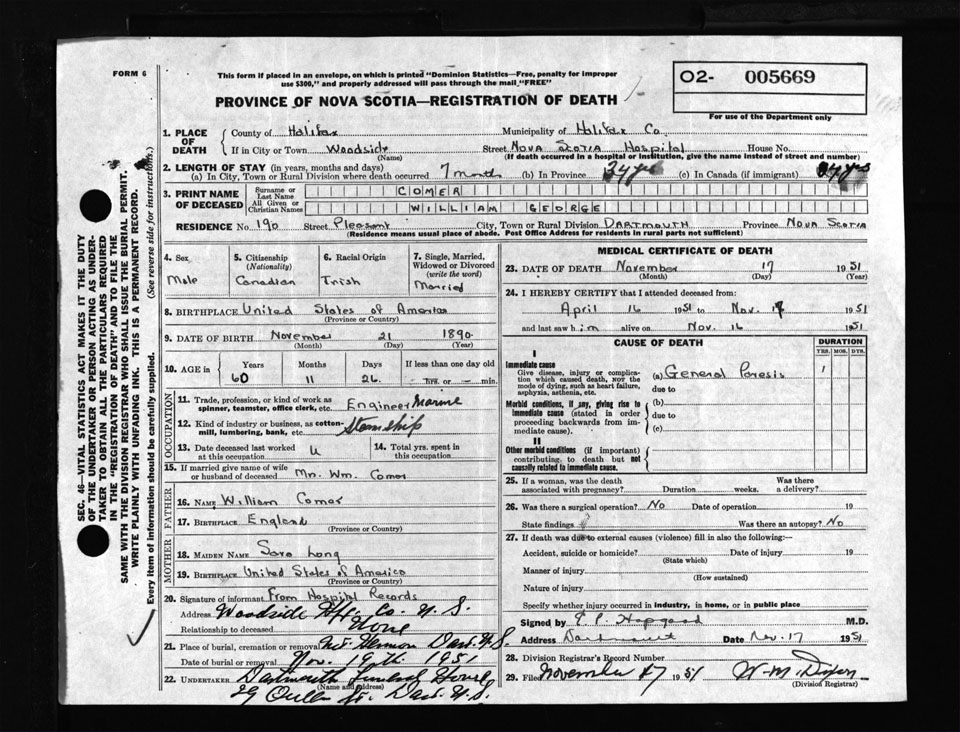 FORM 6
This form if placed in an envelope, on which is printed "Dominion Statistics—Free, penalty for improper
use $300," and properly addressed will pass through the mail "FREE"
PROVINCE OF NOVA SCOTIA—REGISTRATION OF DEATH
O2- 005669
For use of the Department only
1. PLACE OF DEATH
County of Halifax Municipality of Halifax Co
If in City or Town Woodside Street Nova Scotia Hospital House No.
(Name) (If death occurred in a hospital or institution, give the name instead of street and number)
2. LENGTH OF STAY (in years, months and days)
(a) In City, Town or Rural Division where death occurred 7 months (b) In Province 34 yrs (c) In Canada (if immigrant) 34 yrs
3. PRINT NAME OF DECEASED
Surname or Last Name COMER
All Given or Christian Names WILLIAM GEORGE
RESIDENCE No. 190 Street Pleasant City, Town or Rural Division Dartmouth Province Nova Scotia
(Residence means usual place of abode. Post Office Address for residents in rural parts not sufficient)
4. Sex Male
5. Citizenship (Nationality) Canadian
6. Racial Origin Irish
7. Single, Married, Widowed or Divorced (write the word) Married
8. BIRTHPLACE United States of America
(Province or Country)
9. DATE OF BIRTH November 21 1890
(Month) (Day) (Year)
10. AGE in Years 60 Months 11 Days 26 If less than one day old - hrs. or - min.
OCCUPATION
11. Trade, profession or kind of work as
spinner, teamster, office clerk, etc. Engineer Marine
12. Kind of industry or business, as cotton-
mill, lumbering, bank, etc. Steamship
13. Date deceased last worked
at this occupation U
14. Total yrs. spent in
this occupation
15. If married give name of wife
or husband of deceased Mrs. Wm. Comer
FATHER
16. NAME William Comer
17. BIRTHPLACE England
(Province or Country)
MOTHER
18. MAIDEN NAME Sara Long
19. BIRTHPLACE United States of America
(Province or Country)
20. Signature of informant From Hospital Records
Address Woodside Hfx. Co. N. S.
Relationship to deceased None
21. Place of burial, cremation or removal Mt Hermon Dart. N.S.
Date of burial or removal Nov. 19th 1951
22. UNDERTAKER Dartmouth Funeral House
(Name and address)
Dart. N.S.
MEDICAL CERTIFICATE OF DEATH
23. DATE OF DEATH November 17 1951
(Month) (Day) (Year)
24. I HEREBY CERTIFY that I attended deceased from:
April 16 1951 to Nov. 17 1951
and last saw him alive on Nov. 16 1951
CAUSE OF DEATH
DURATION
YRS. MOS. DYS.
I
Immediate cause
Give disease, injury or complica-
tion which caused death, NOT the
mode of dying, such as heart failure,
asphyxia, asthenia, etc.
(a) General Paresis 1
due to
Morbid conditions, if any, giving rise to
immediate cause (stated in order
proceeding backwards from im-
mediate cause).
(b)
due to
(c)
II
Other morbid conditions (if important)
contributing to death but not
causally related to immediate cause.
25. If a woman, was the death
associated with pregnancy? Duration weeks. Was there
a delivery?
26. Was there a surgical operation? No Date of operation 19
State findings Was there an autopsy? No
27. If death was due to external causes (violence) fill in also the following:—
Accident, suicide or homicide? Date of injury 19
(State which)
Manner of injury
(How sustained)
Nature of injury
Specify whether injury occurred in industry, in home, or in public place
Signed by Hopgood M.D.
Address Dartmouth Date Nov. 17 1951
28. Division Registrar's Record Number
29. Filed November 17 1951
(Division Registrar)
SEC. 46—VITAL STATISTICS ACT MAKES IT THE DUTY
OF THE UNDERTAKER OR PERSON ACTING AS UNDER-
TAKER TO OBTAIN ALL THE PARTICULARS REQUIRED
IN THE "REGISTRATION OF DEATH" AND TO FILE THE
SAME WITH THE DIVISION REGISTRAR WHO SHALL ISSUE THE BURIAL PERMIT.
WRITE PLAINLY WITH UNFADING INK. THIS IS A PERMANENT RECORD.
Every item of information should be carefully supplied. (See reverse side for instructions.)